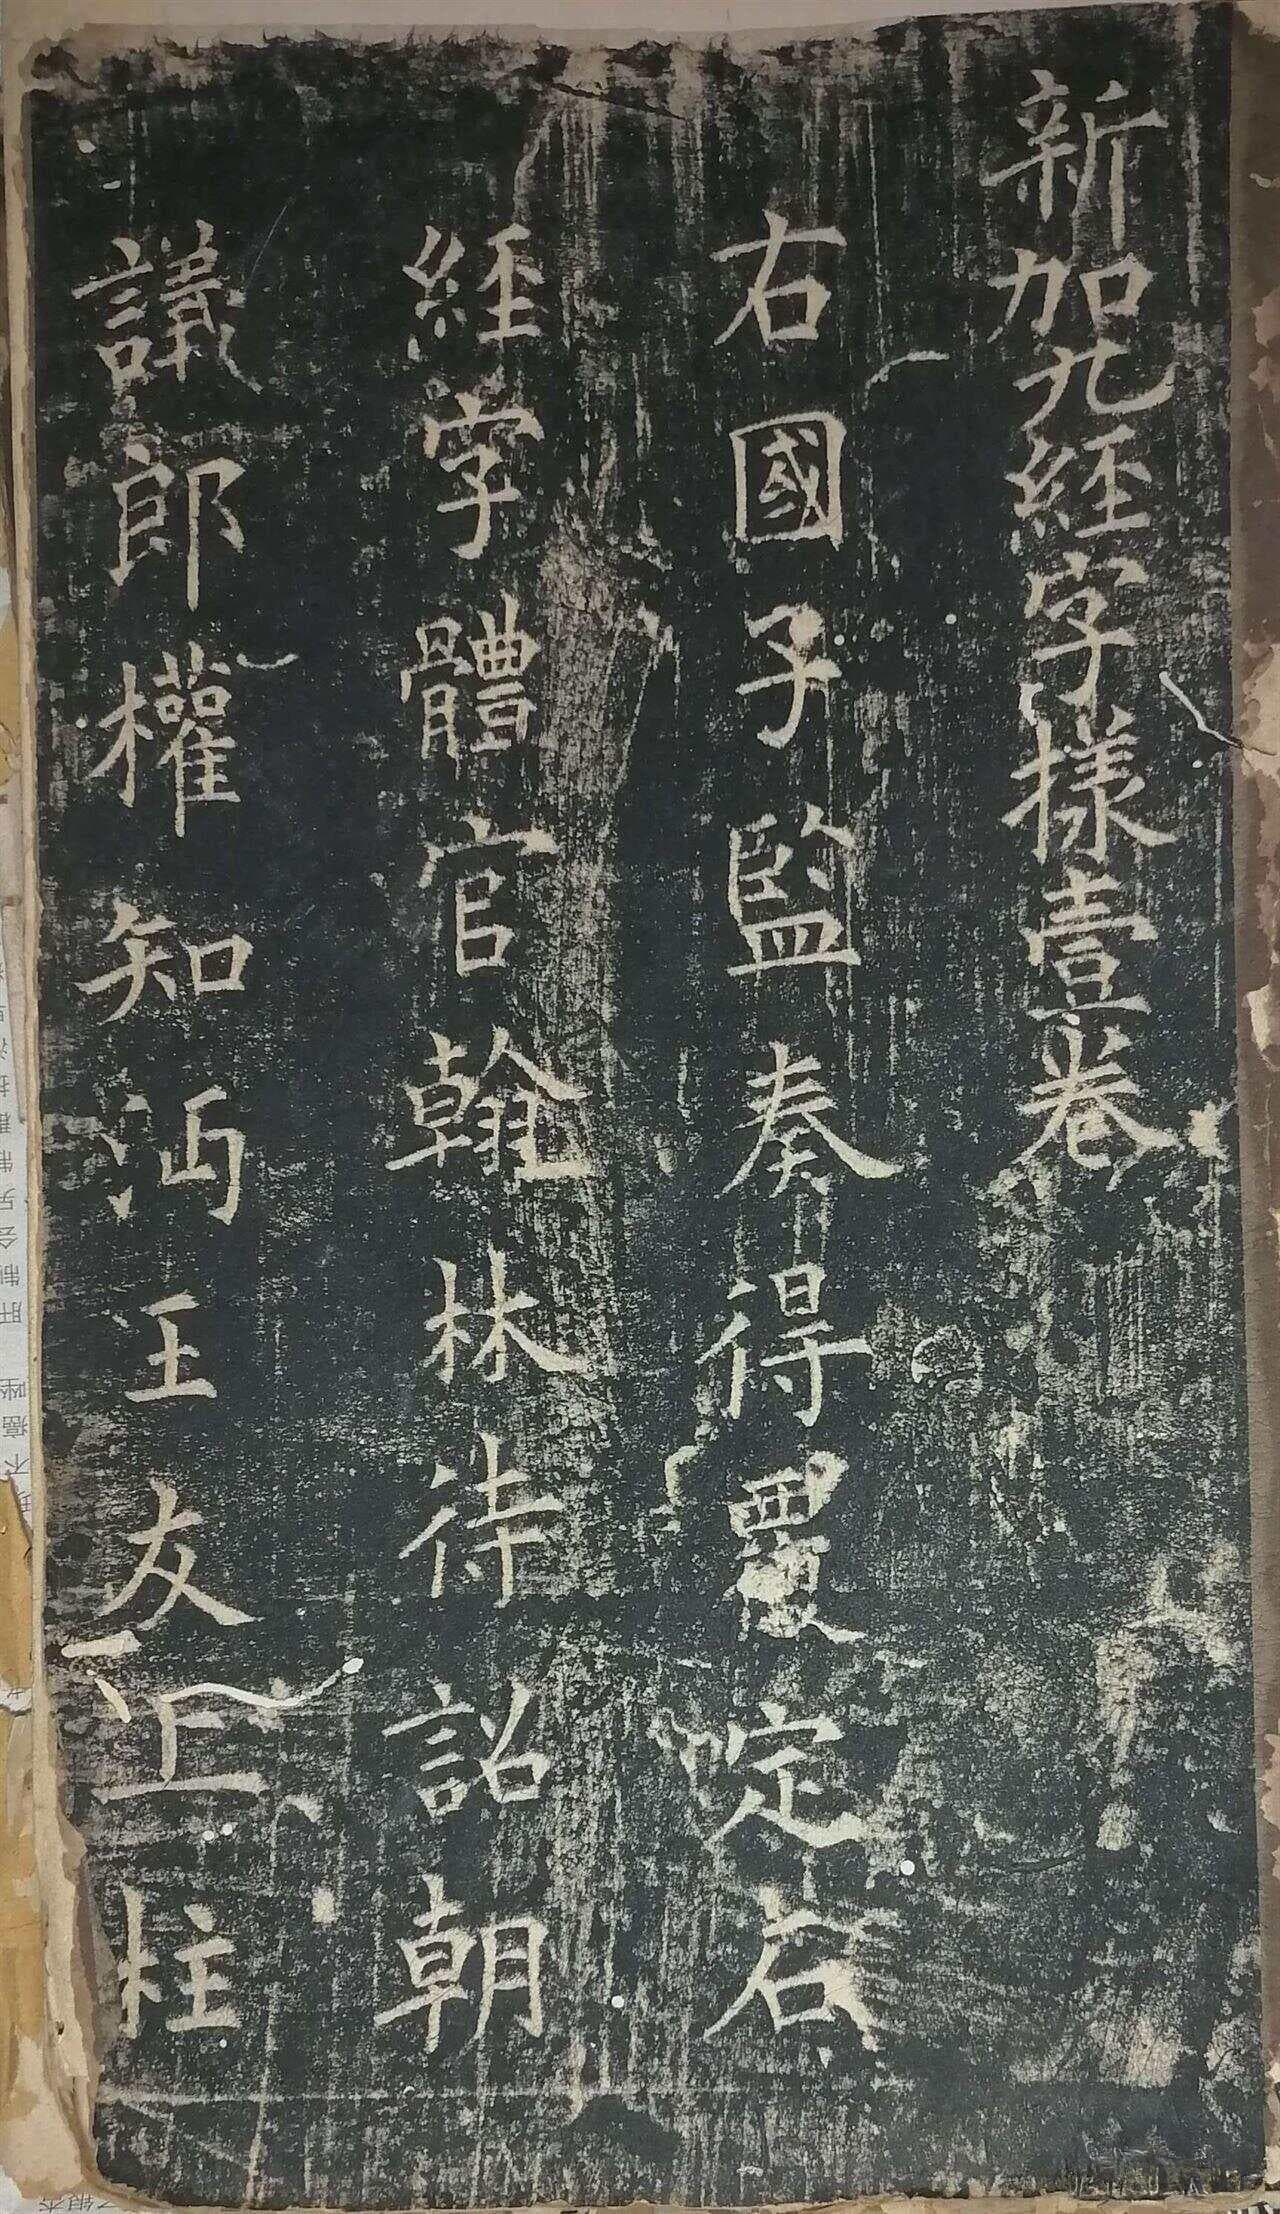 新加九經字樣壹卷
右國子監奏得覆定石
經字體官翰林待詔朝
議郎權知沔王友上柱